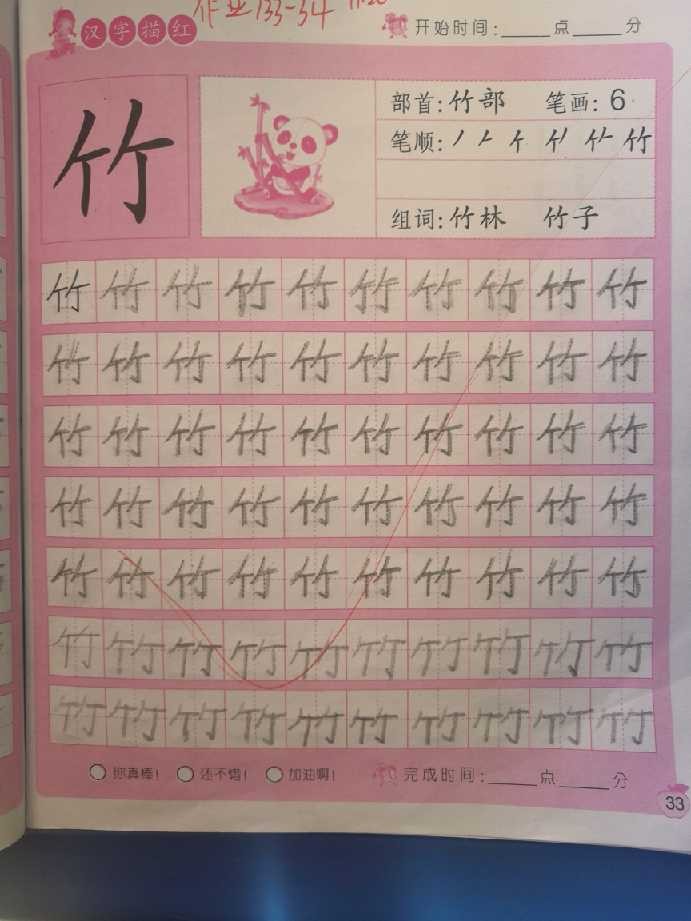 作业133-34
汉字描红 开始时间:_____点_____分
竹 部首:竹部 笔画:6
笔顺:丿 𠂉 亻 竹
组词:竹林 竹子
竹 竹 竹 竹 竹 竹 竹 竹 竹 竹
竹 竹 竹 竹 竹 竹 竹 竹 竹 竹
竹 竹 竹 竹 竹 竹 竹 竹 竹 竹
竹 竹 竹 竹 竹 竹 竹 竹 竹 竹
竹 竹 竹 竹 竹 竹 竹 竹 竹 竹
竹 竹 竹 竹 竹 竹 竹 竹 竹 竹
竹 竹 竹 竹 竹 竹 竹 竹 竹 竹
你真棒! 还不错! 加油啊! 完成时间:_____点_____分
33